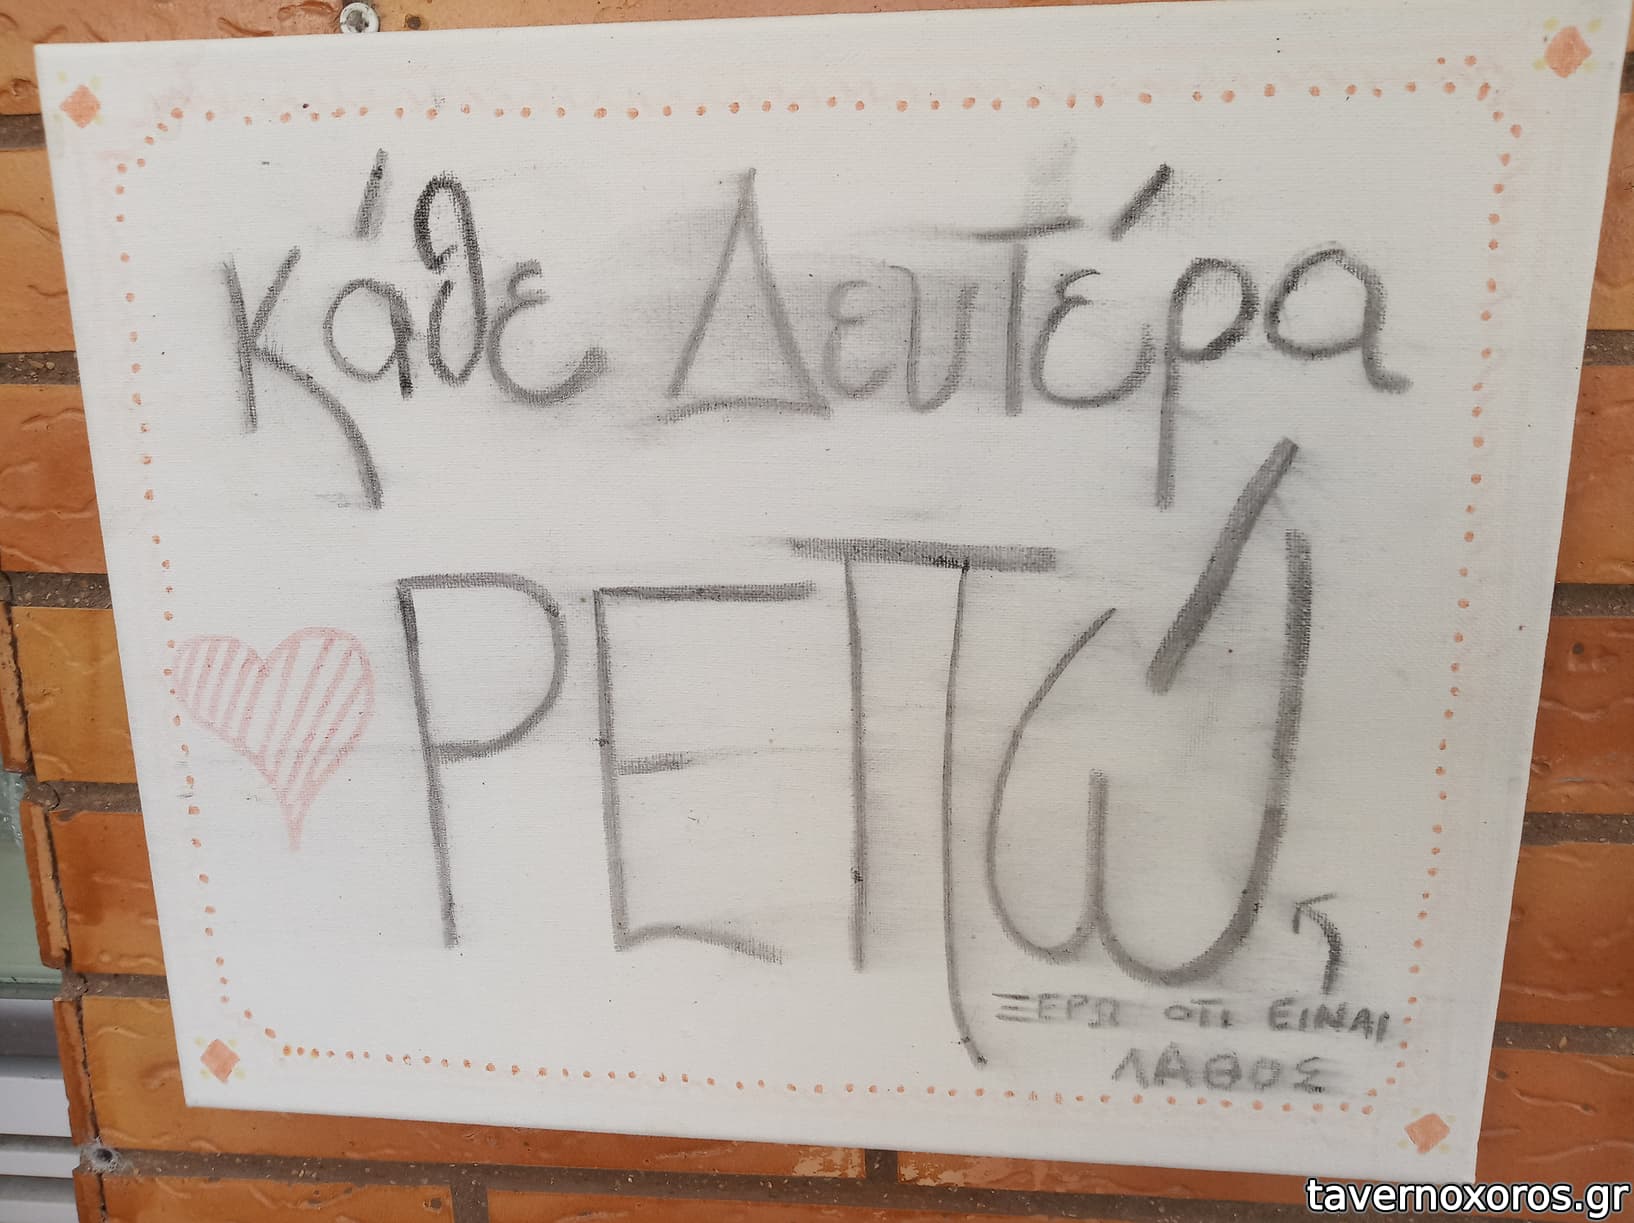 κάθε Δευτέρα
ΡΕΠώ
ΞΕΡΩ ΟΤΙ ΕΙΝΑΙ
ΛΑΘΟΣ
tavernoxoros.gr